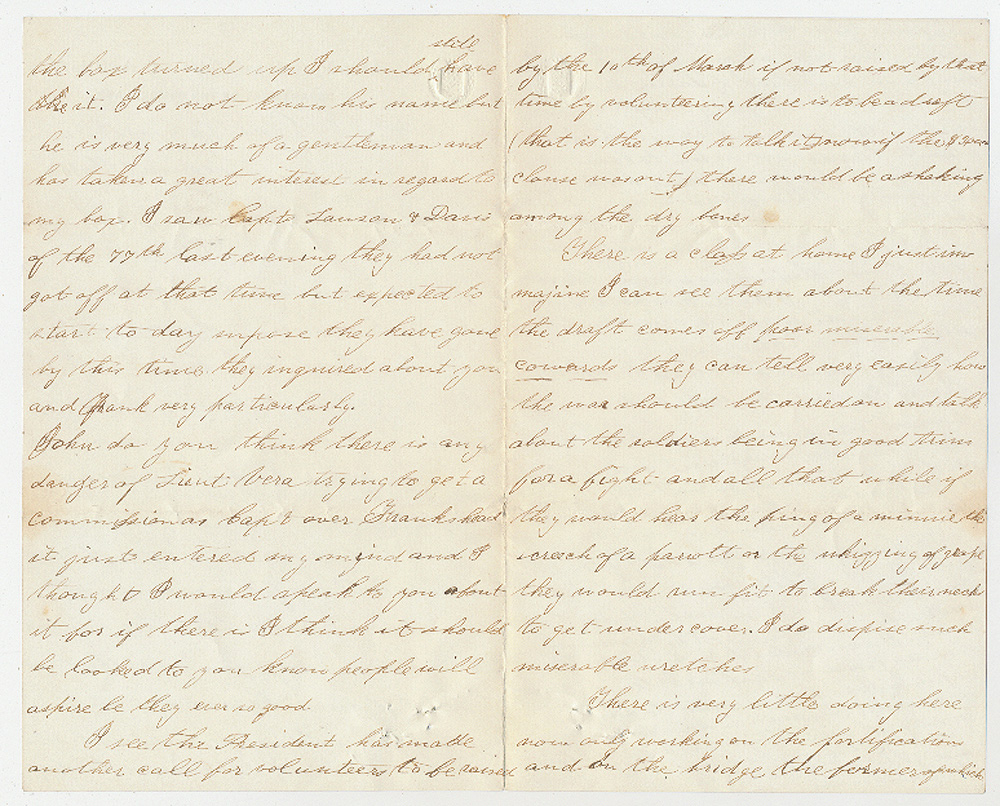 still
the box turned up I should have
like it. I do not know his name but
he is very much of a gentleman and
has taken a great interest in regard to
my box. I saw Capts Lawson & Davis
of the 77th last evening they had not
got off at that time but expected to
start to day supose they have gone
by this time they inquired about you
and Frank very particularly.
John do you think there is any
danger of Lieut Vera trying to get a
commission as Capt over Franks head
it just entered my mind and I
thought I would speak to you about
it for if there is I think it should
be looked to you know people will
aspire be they ever so good.
I see the President has made
another call for volunteers to be raised
by the 10th of March if not raised by that
time by volunteering there is to be a draft
(that is the way to talk it) now if the $300
clause was out) there would be a shaking
among the dry bones
There is a class at home I just im
majine I can see them about the time
the draft comes off poor miserable
cowards they can tell very easily how
the war should be carried on and talk
about the soldiers being in good trim
for a fight and all that while if
they would hear the ping of a minnie the
screach of a parott or the whizzing of grape
they would run fit to break their neck
to get under cover. I do dispise such
miserable wretches
There is very little doing here
now only working on the fortifications
and on the bridge the former of which